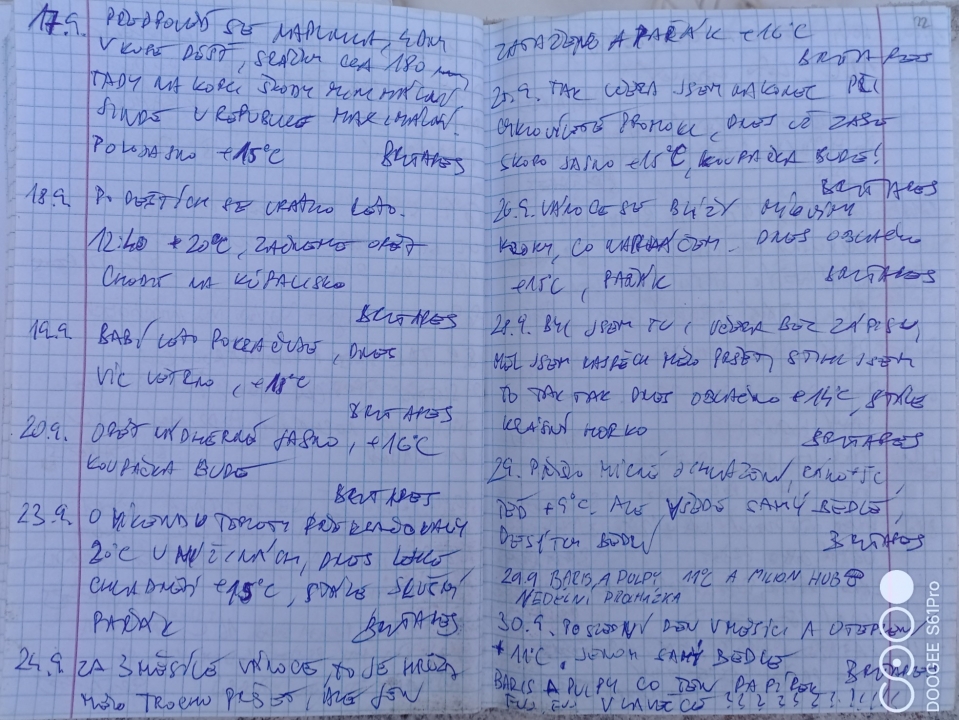 17.9. PŘEDPOVĚĎ SE NAPLNILA, 4 DNY
V KUPĚ DÉŠŤ, SRÁŽKY CCA 180 mm,
TADY NA KOPCI ŠKODY MINIMÁLNÍ
JINDE V REPUBLICE MAXIMÁLNÍ.
POLOJASNO +15°C BRTAPES
18.9. PO DEŠTÍCH SE VRÁTILO LÉTO.
12:40 +20°C, ZAČNEME OPĚT
CHODIT NA KÚPALISKO
BRTAPES
19.9. BABÍ LÉTO POKRAČUJE, DNES
VÍC VĚTRNO, +18°C
BRTAPES
20.9. OPĚT NÁDHERNĚ JASNO, +16°C
KOUPAČKA BUDE
BRTAPES
23.9. O VÍKENDU TEPLOTY PŘEKRAČOVALY
20°C V NÍŽINÁCH, DNES LEHCE
CHLADNĚJI +15°C, STÁLE SKUČÍ
PAŘÁK BRTAPES
24.9. ZA 3 MĚSÍCE VÁNOCE, TO JE HRŮZA
MĚLO TROCHU PRŠET, ALE JEN
ZATAŽENO A PAŘÁK +16°C
BRTAPES
25.9. TAK VČERA JSEM NAKONEC PĚKNĚ
PROMOKL, DNES UŽ ZASE
SKORO JASNO +15°C, KOUPAČKA BUDE!
BRTAPES
26.9. VÁNOCE SE BLÍŽÍ MÍLOVÝMI
KROKY, CO NADĚLÁM. DNES OBLAČNO
+15°C, PAŘÁK BRTAPES
28.9. BYL JSEM TU I VČERA BEZ ZÁPISU,
MĚL JSEM NASPĚCH MĚLO PRŠET, STIHL JSEM
TO TAK TAK DNES OBLAČNO +14°C, STÁLE
KRÁSNÝ HORKO
BRTAPES
29. PŘIŠLO MÍRNÉ OCHLAZENÍ, RÁNO +5°C,
TEĎ +9°C. ALE VŠUDE SAMÝ BEDLE,
DESÍTKY BEDEL BRTAPES
29.9 BARIS A PULPY 11°C A MILION HUB
NEDĚLNÍ PROCHÁZKA
30.9. POSLEDNÍ DEN V MĚSÍCI A OTEPLENÍ
+11°C. JENOM SAMÝ BEDLE
BRTAPES
BARIS A PULPY CO TEN PAPÍREK
V LAVICCE ? ? ? ? ? ! ! ! ! !
DOOGEE S61Pro